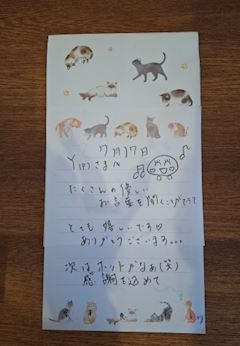 7月17日
Y(P)さまへ
たくさんの優しい
お言葉を聞くことができて
とても嬉しいです♡
ありがとうございます...
次はホットかなぁ(笑)
感謝を込めて